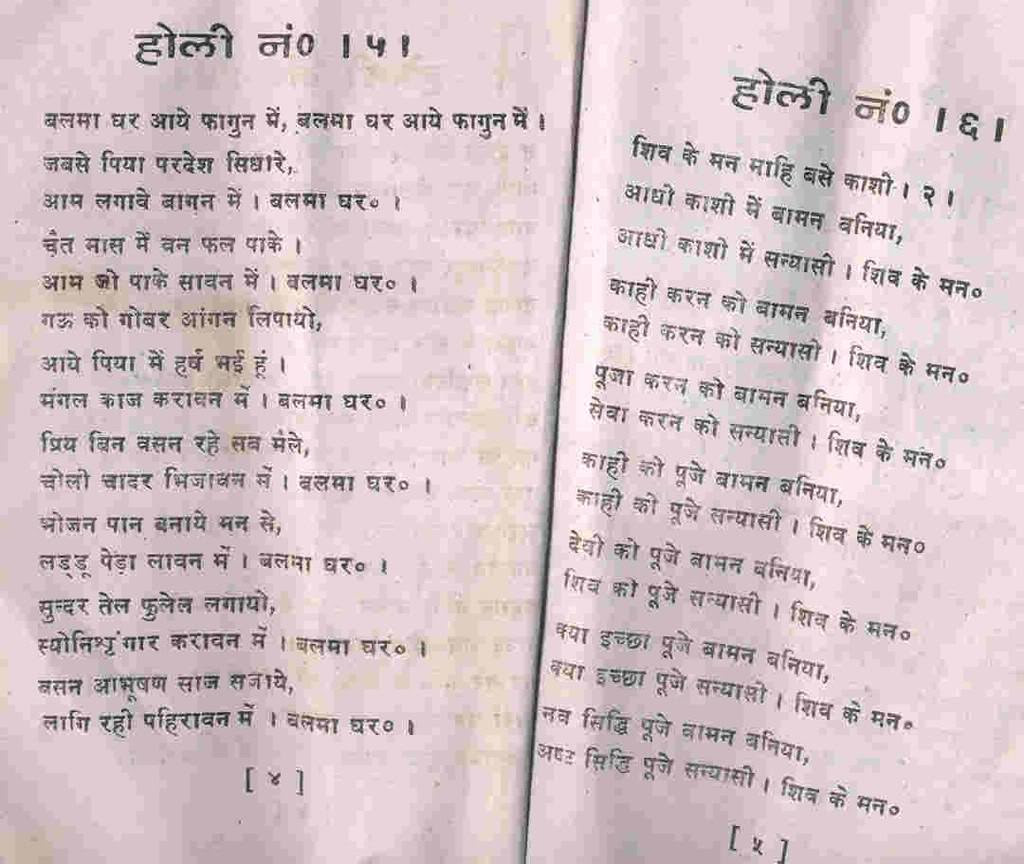 होली नं० ।५।
बलमा घर आये फागुन में, बलमा घर आये फागुन में ।
जबसे पिया परदेश सिधारे,
आम लगावे बागन में । बलमा घर० ।
चैत मास में वन फल पाके ।
आम जो पाके सावन में । बलमा घर० ।
गऊ को गोबर आंगन लिपायो,
आये पिया में हर्ष भई हूं ।
मंगल काज करावन में । बलमा घर० ।
प्रिय बिन वसन रहे सब मैले,
चोली चादर भिजावन में । बलमा घर० ।
भोजन पान बनाये मन से,
लड्डू पेड़ा लावन में । बलमा घर० ।
सुन्दर तेल फुलेल लगायो,
स्योनिश्रृंगार करावन में । बलमा घर० ।
बसन आभूषण साज सजाये,
लागि रही पहिरावन में । बलमा घर० ।
[ ४ ]
होली नं० ।६।
शिव के मन माहि बसे काशी । २ ।
आधी काशी में बामन बनिया,
आधी काशी में सन्यासी । शिव के मन०
काही करन को बामन बनिया,
काही करन को सन्यासी । शिव के मन०
पूजा करन को बामन बनिया,
सेवा करन को सन्यासी । शिव के मन०
काही को पूजे बामन बनिया,
काही को पूजे सन्यासी । शिव के मन०
देवी को पूजे बामन बनिया,
शिव को पूजे सन्यासी । शिव के मन०
क्या इच्छा पूजे बामन बनिया,
क्या इच्छा पूजे सन्यासी । शिव के मन०
नव सिद्धि पूजे बामन बनिया,
अष्ट सिद्धि पूजे सन्यासी । शिव के मन०
[ ५ ]